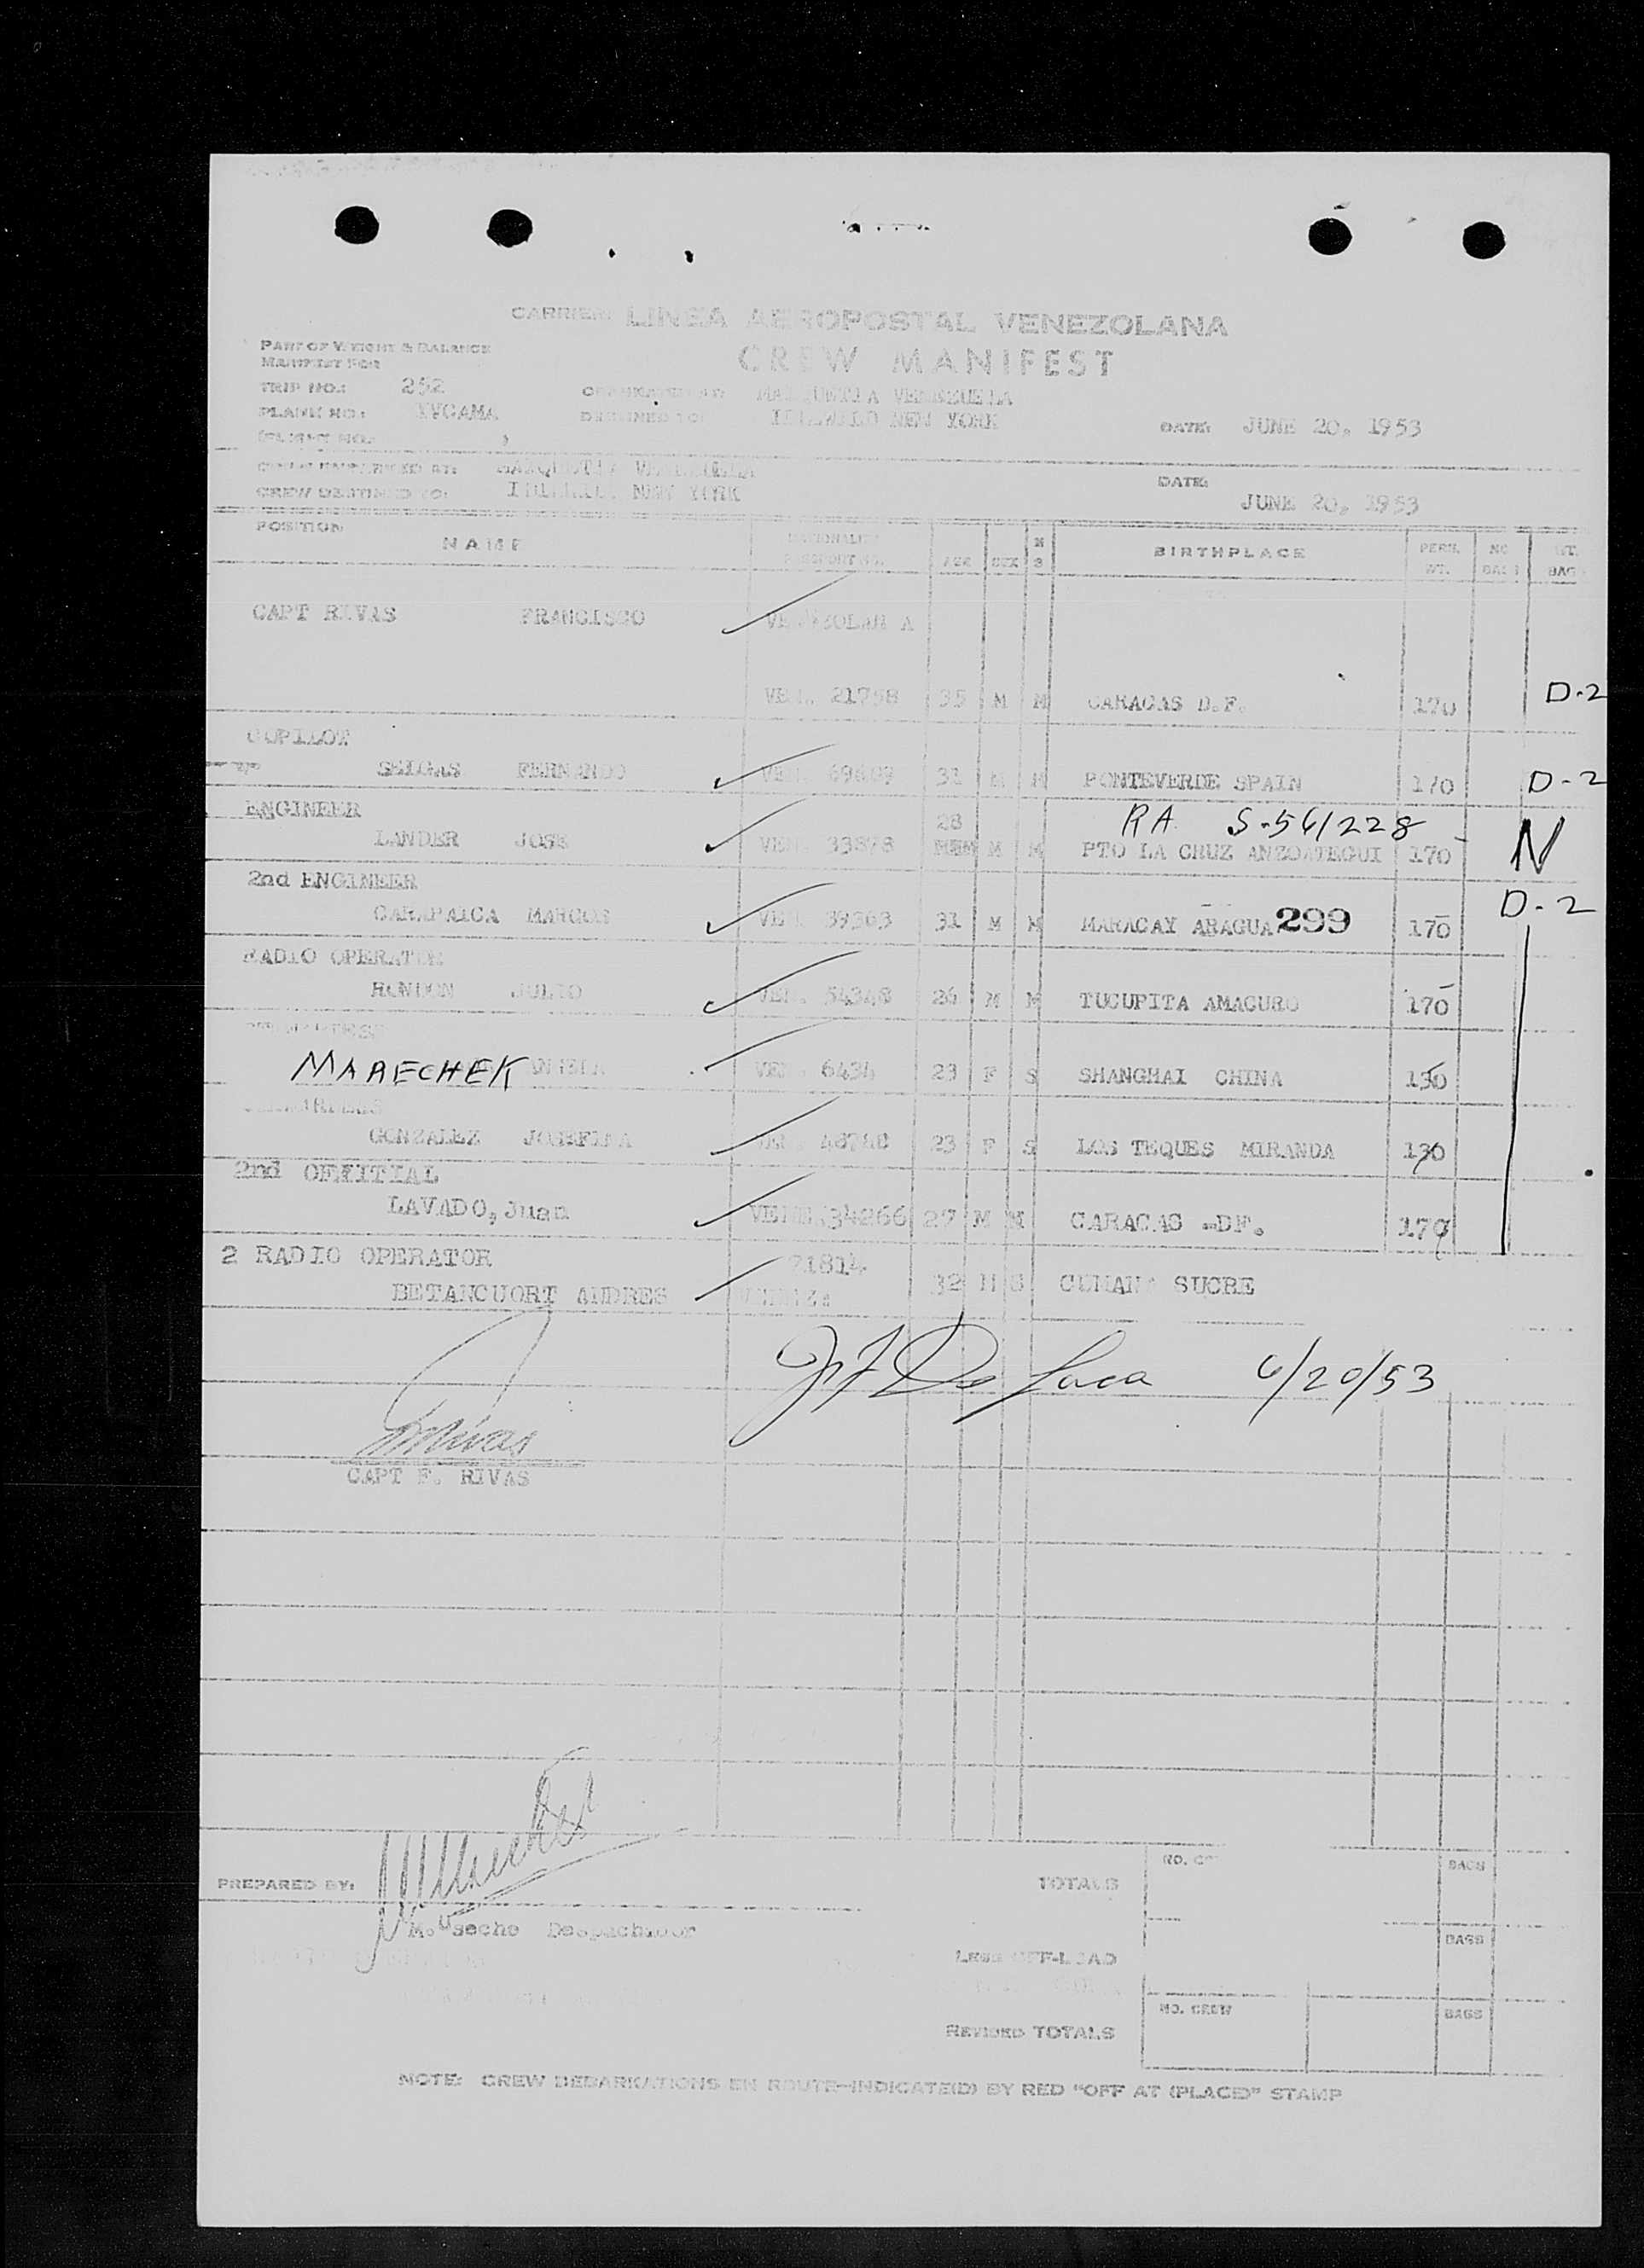 CARRIER: LINEA AEROPOSTAL VENEZOLANA
PART OF WEIGHT & BALANCE
MANIFEST FOR
CREW MANIFEST
TRIP NO.: 252 VENEZUELA
PLANE NO.: YVCAMA DESTINED TO: IDLEWILD NEW YORK DATE: JUNE 20, 1953
(FLIGHT NO. )
CREW DESTINED TO: NEW YORK DATE: JUNE 20, 1953
POSITION NAME NATIONALITY PASSPORT NO. AGE SEX M S BIRTHPLACE PERS. WT. NO BAGS WT. BAG
CAPT RIVAS FRANCISCO
35 M M CARACAS D.F. 170 D-2
COPILOT
SEIGAS FERNANDO VEN. 31 M M PONTEVERDE SPAIN 170 D-2
ENGINEER 28 RA S-561228
LANDER JOSE VEN. 33878 M M PTO LA CRUZ ANZOATEGUI 170 N
2nd ENGINEER
CARAPAICA MARCOS VEN. 39363 31 M M MARACAY ARAGUA 299 170 D-2
RADIO OPERATER
RONDON JULIO VEN. 54348 26 M M TUCUPITA AMACURO 170
MARECHEK VEN. 23 F S SHANGHAI CHINA 130
GONZALEZ JOSEFINA VEN. 23 F S LOS TEQUES MIRANDA 130
2nd OFFITIAL
LAVADO, Juan 34266 27 M M CARACAS -DF. 170
2 RADIO OPERATOR 21814
BETANCUORT ANDRES 32 M S CUMANA SUCRE
De Luca 6/20/53
CAPT F. RIVAS
PREPARED BY: TOTALS BAGS
Despachador
LESS OFF-LOAD BAGS
REVISED TOTALS NO. CREW BAGS
NOTE: CREW DEBARKATIONS EN ROUTE—INDICATE(D) BY RED "OFF AT (PLACE)" STAMP